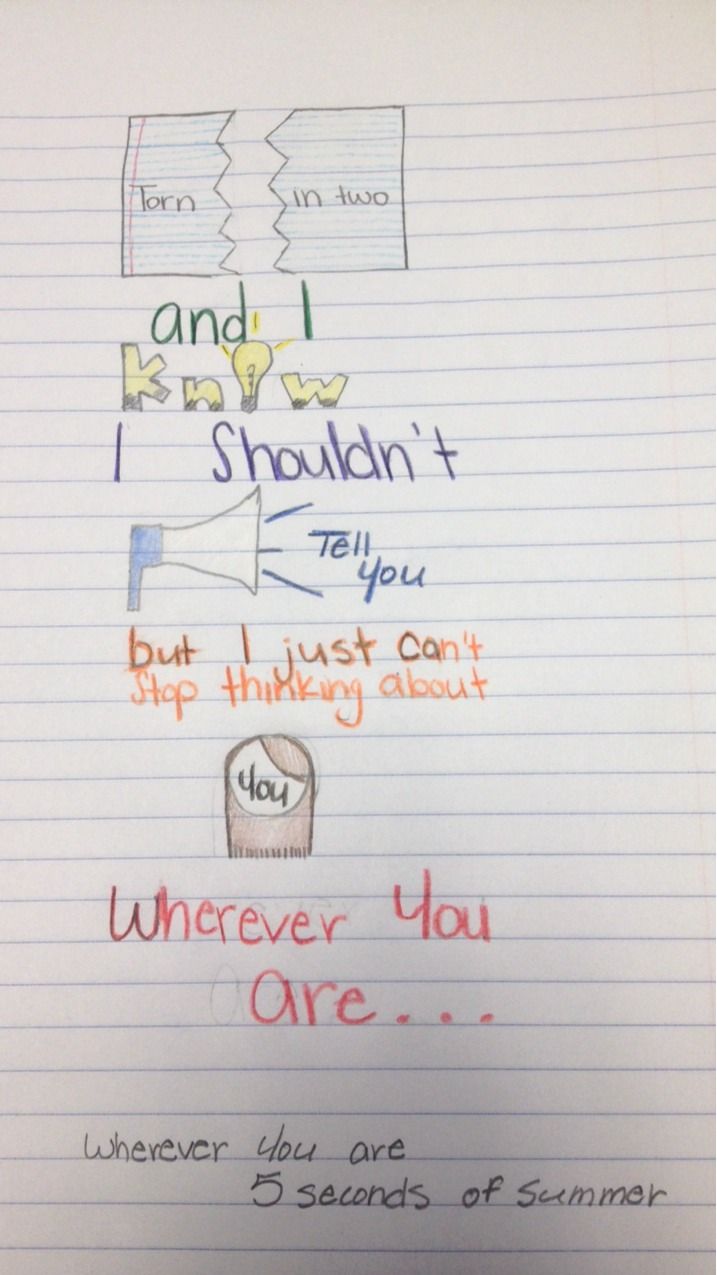 Torn in two
and I
know
I Shouldn't
Tell
you
but I just can't
Stop thinking about
you
Wherever you
are...
Wherever you are
5 seconds of summer